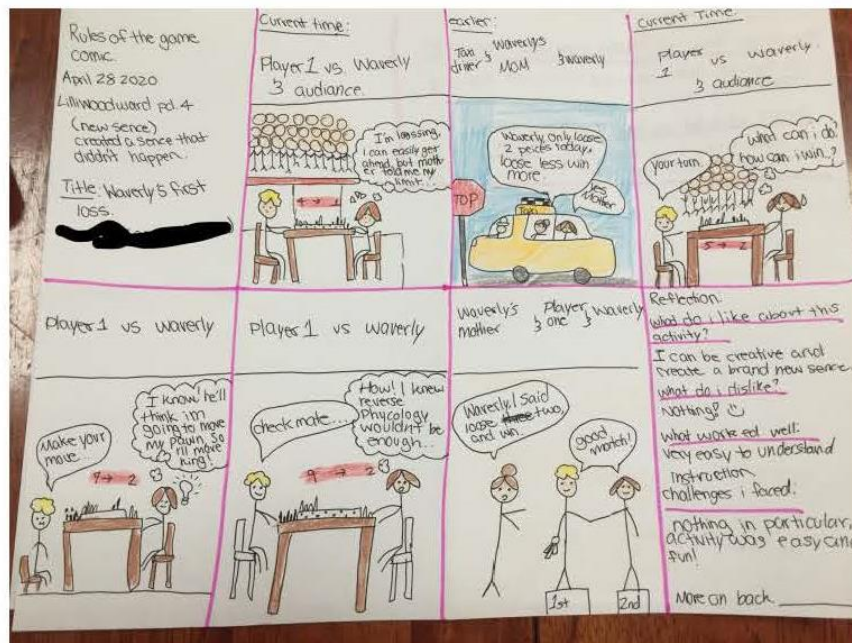 Rules of the game
comic.
April 28 2020
Lilliwoodward pd. 4
(new sence)
created a sence that
didn't happen.
Title: Waverly's first
loss.
Current time:
Player 1 vs. Waverly
& audience.
I'm loosing,
i can easily get
ahead, but moth
er told me my
limit...
4 → 1
earlier:
Taxi driver & Waverly's MOM & waverly
Waverly, only loose
2 peices today,
loose less win
more.
yes
Mother
TOP
Taxi
Current Time:
Player 1 vs waverly.
& audience
What can i do?
how can i win..?
your turn.
5 → 2
Player 1 vs waverly
I know! he'll
think im
going to move
my pawn, so
i'll move
king!
Make your
move...
→ 2
Player 1 vs waverly
How! I knew
reverse
phycology
wouldn't be
enough...
check mate...
9 → 2
Waverly's mother & Player one & waverly
Waverly, I said
loose three two,
and win.
good
match!
1st
2nd
Reflection:
what do i like about this
activity?
I can be creative and
create a brand new sence.
what do i dislike?
Nothing!
what worked well:
very easy to understand
instruction
challenges i faced:
nothing in particular,
activity was easy and
fun!
More on back